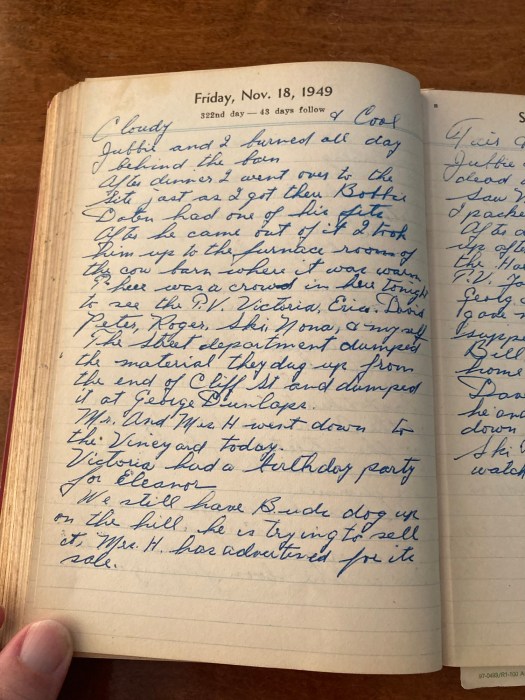 Friday, Nov. 18, 1949
322nd day — 43 days follow
Cloudy & Cool
Jubbie and I burned all day
behind the barn
After dinner I went over to the
Just as I got there Bobbie
Daten had one of his fits
After he came out of it I took
him up to the furnace room of
the cow barn where it was warm
There was a crowd in here tonight
to see the T.V. Victoria, Erica, David
Peter, Roger, Ski, Nona, & myself
The Street department dumped
the material they dug up from
the end of Cliff St and dumped
it at George Dunlaps.
Mr. And Mrs H went down to
the Vineyard today.
Victoria had a birthday party
for Eleanor
We still have Buds dog up
on the hill. he is trying to sell
it, Mrs. H. has advertised for its
sale.
S
Fair &
Jubbie
dead
Saw
I pack
After d
up aft
the Ha
T.V.
Georg
gave
suppe
Bill
home
Dav
he and
down
Ski
watch